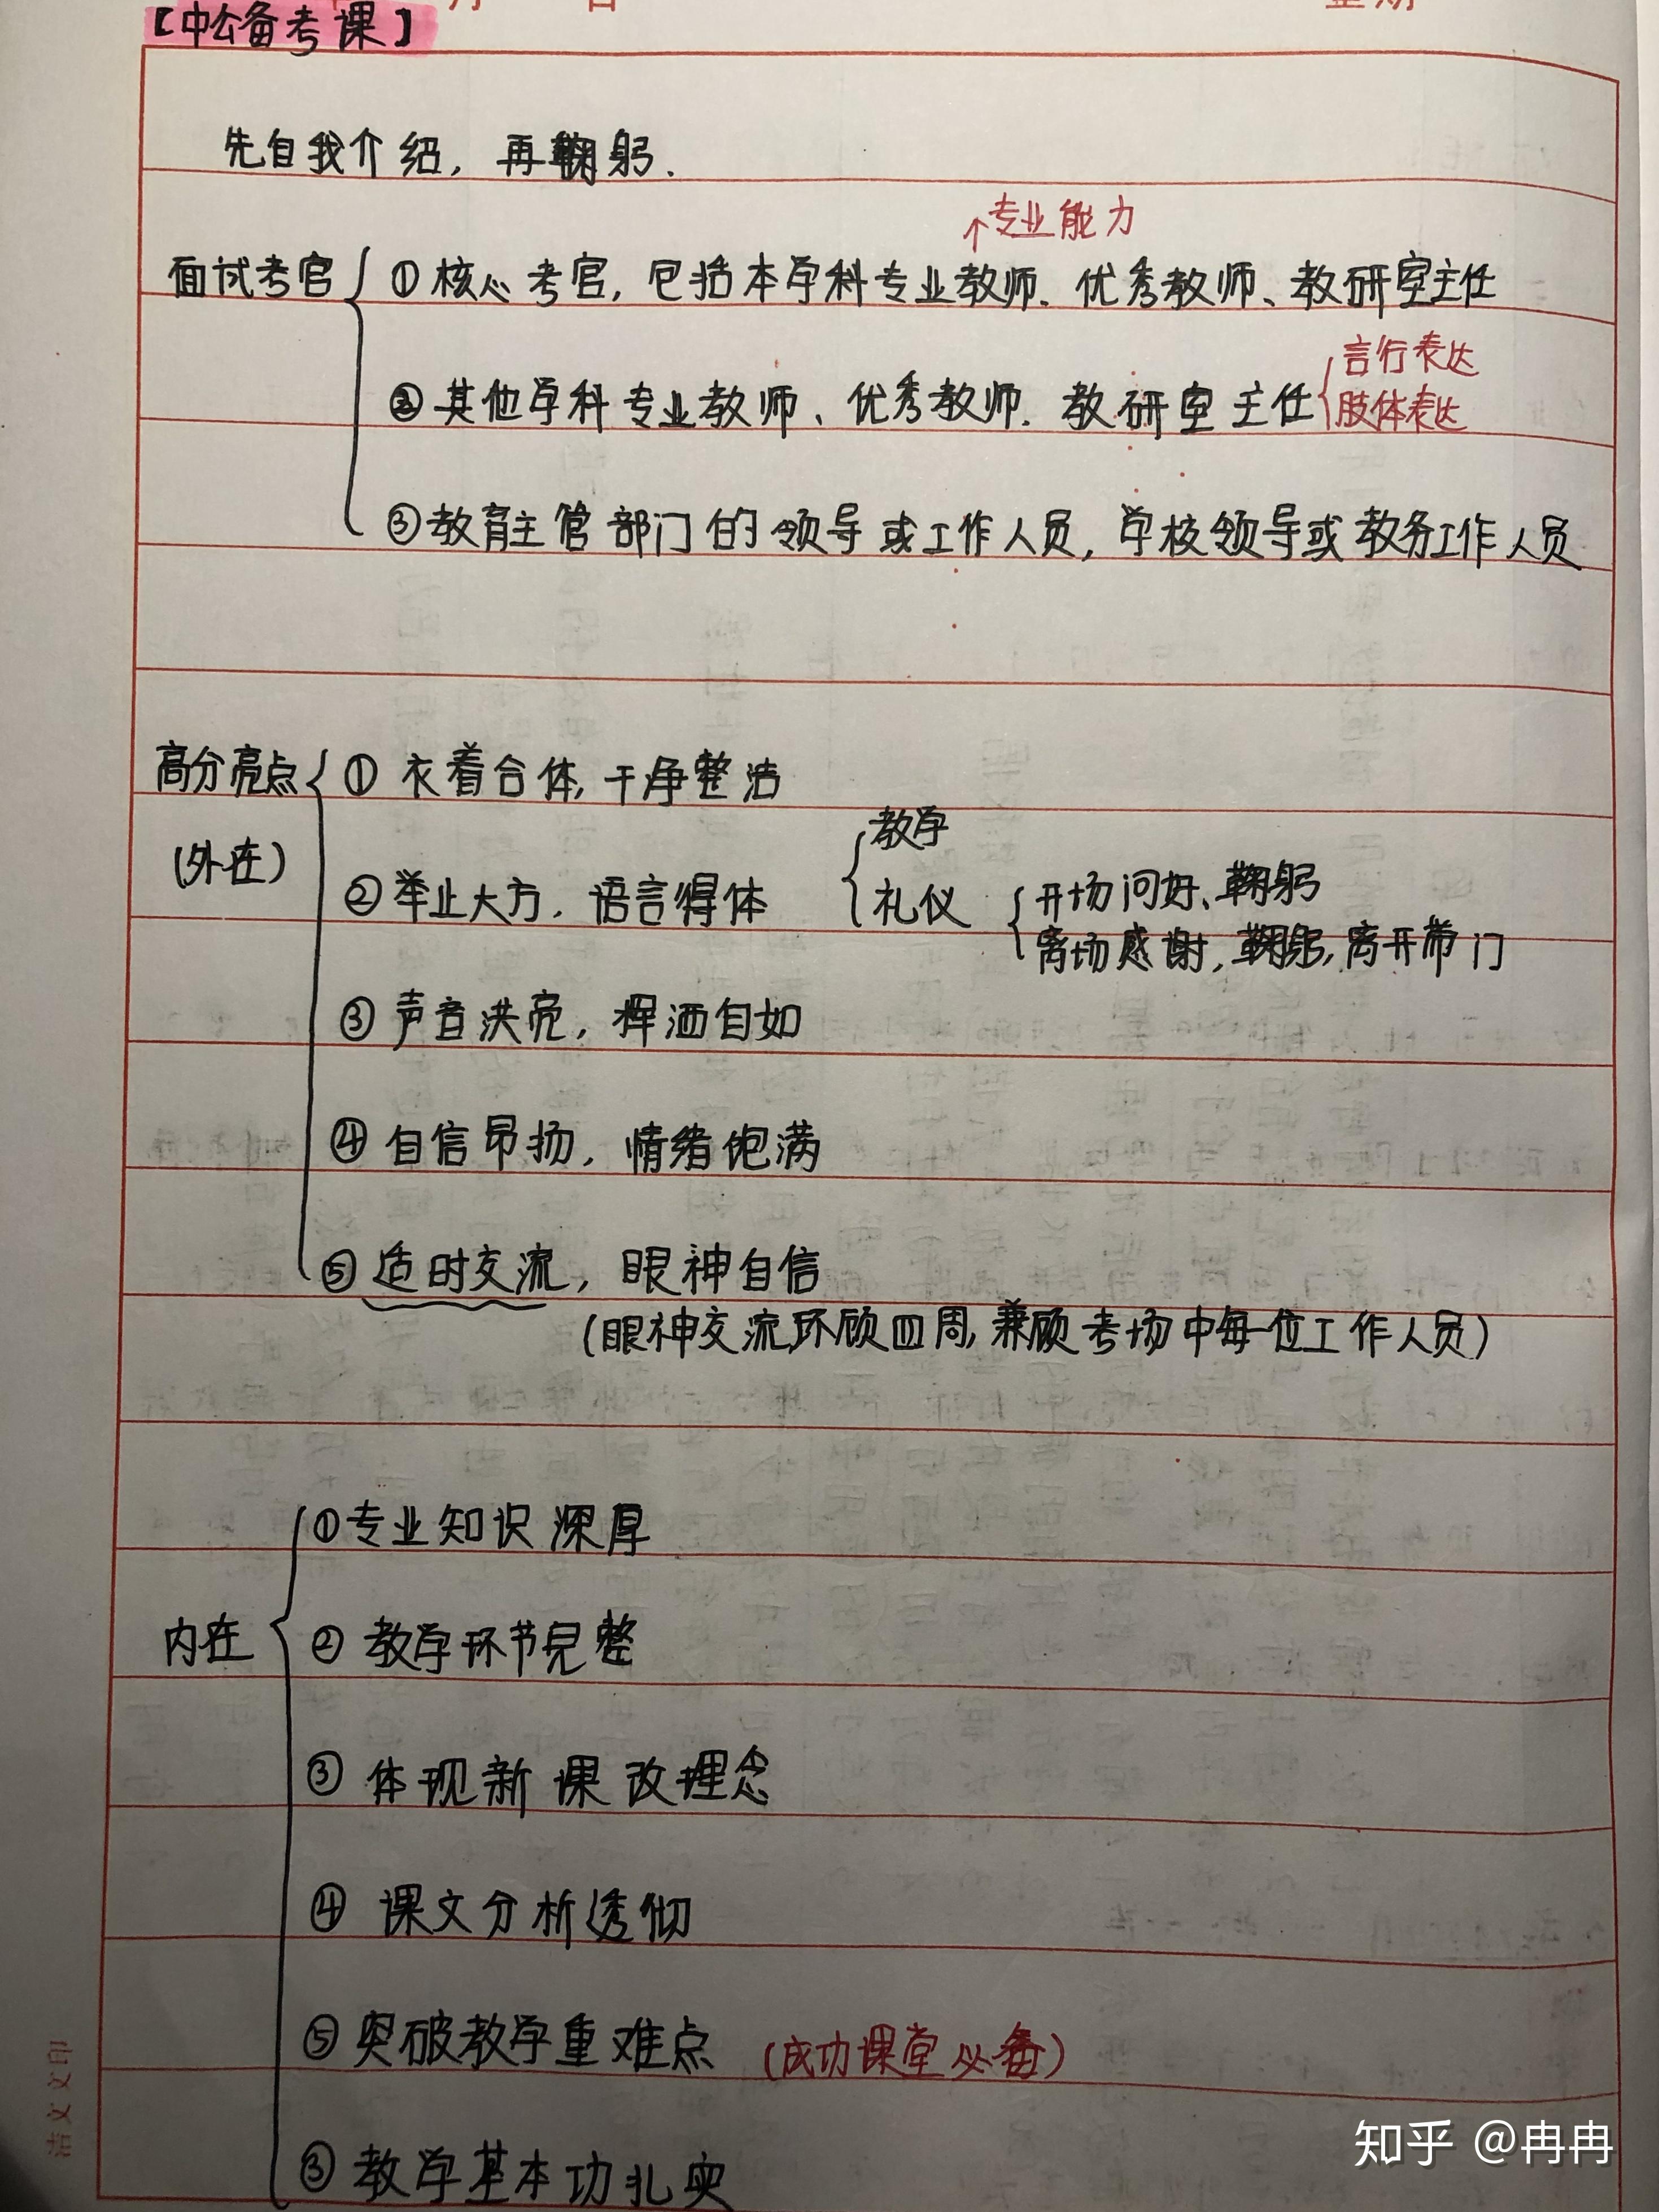 【中公备考课】
先自我介绍，再鞠躬.
↑专业能力
面试考官 ①核心考官，包括本学科专业教师、优秀教师、教研室主任
言行表达
②其他学科专业教师、优秀教师、教研室主任 肢体表达
③教育主管部门的领导或工作人员，学校领导或教务工作人员
高分亮点 ①衣着合体，干净整洁
(外在)
教学
②举止大方，语言得体 礼仪 开场问好、鞠躬
离场感谢，鞠躬，离开带门
③声音洪亮，挥洒自如
④自信昂扬，情绪饱满
⑤适时交流，眼神自信
(眼神交流环顾四周，兼顾考场中每一位工作人员)
①专业知识深厚
内在 ②教学环节完整
③体现新课改理念
④课文分析透彻
⑤突破教学重难点 (成功课堂必备)
③教学基本功扎实
洁文文印
知乎 @冉冉